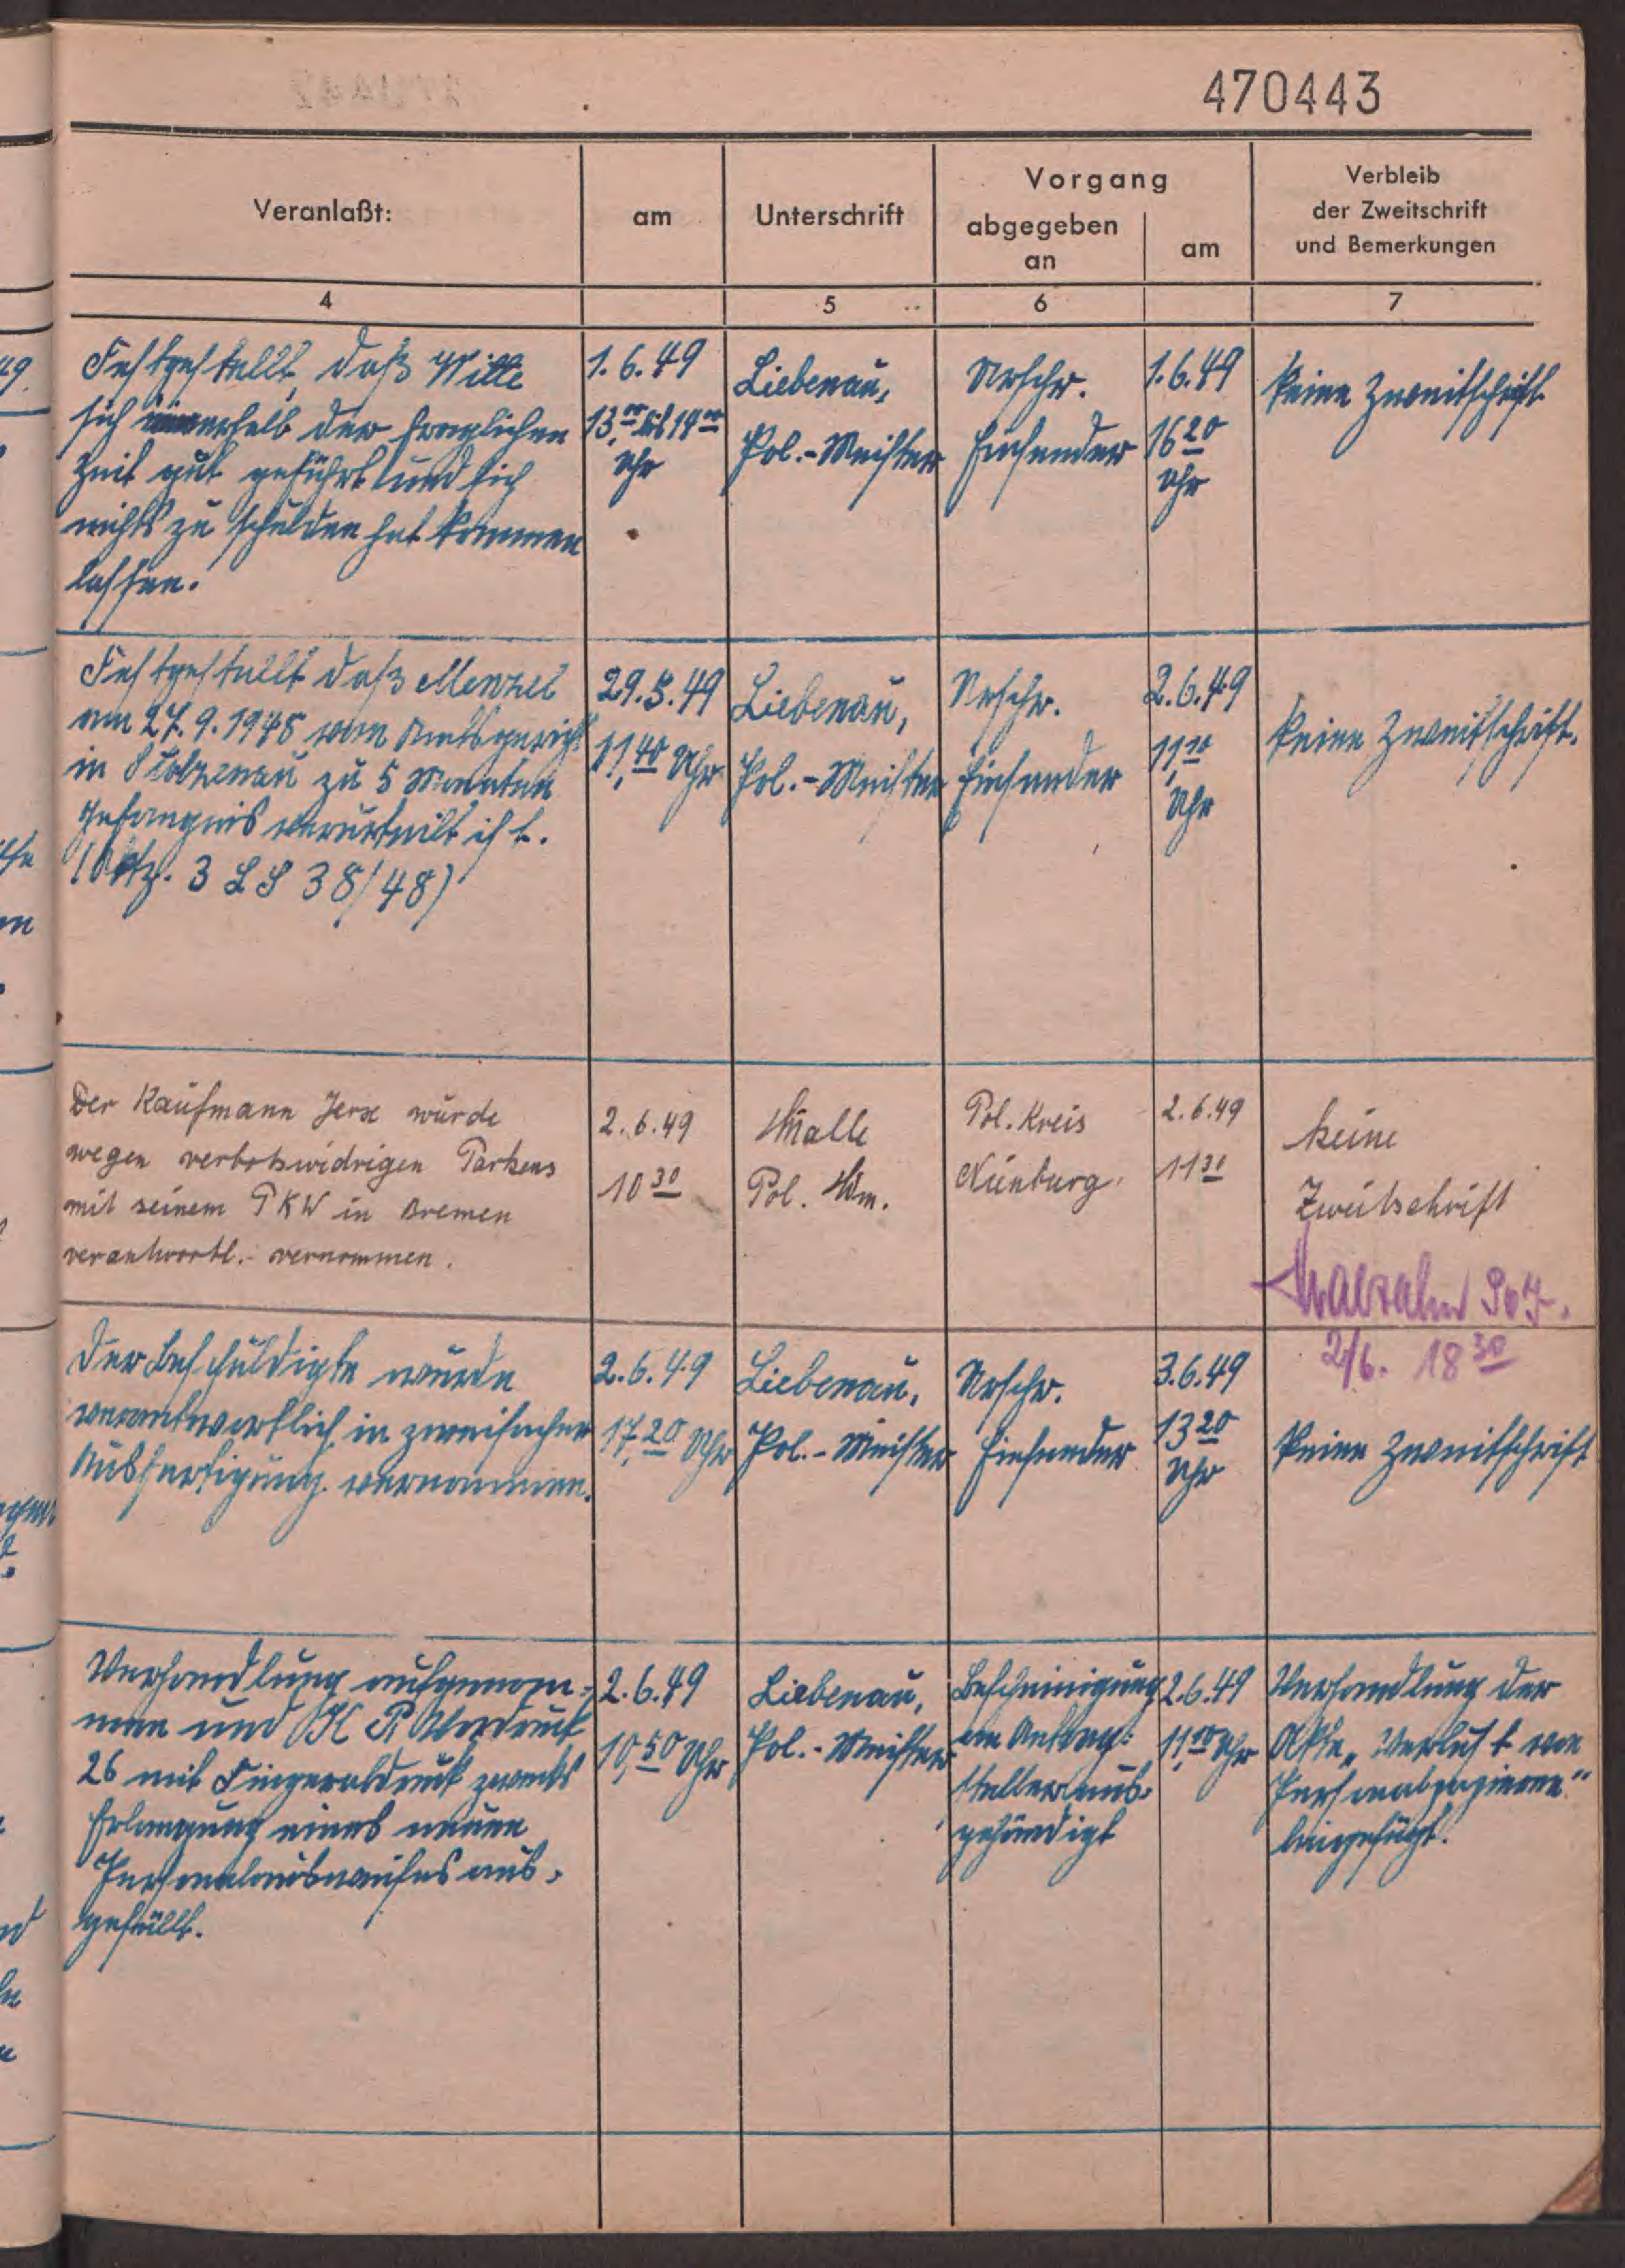 470443
Veranlaßt:
am
Unterschrift
Vorgang
abgegeben
an
am
Verbleib
der Zweitschrift
und Bemerkungen
4
5
6
7
Festgestellt, daß Wille
sich innerhalb der fraglichen
Zeit gut geführt und sich
nichts zu schulden hat kommen
lassen.
1.6.49
13,00 bis 14 00
Uhr
Liebenau,
Pol.-Meister
Urschr.
Einsender
1.6.49
16 20
Uhr
keine Zweitschrift
Festgestellt daß Menzel
am 27.9.1948 vom Amtsgericht
in Stolzenau zu 5 Monaten
Gefängnis verurteilt ist.
(Aktz. 3 LS 38/48)
29.5.49
11,40 Uhr
Liebenau,
Pol.-Meister
Urschr.
Einsender
2.6.49
11,10
Uhr
keine Zweitschrift.
Der Kaufmann Jerx wurde
wegen verbotswidrigen Parkens
mit seinem PKW in Bremen
verantwortl. vernommen.
2.6.49
10 30
Pol.
Pol. Kreis
Nienburg
2.6.49
11 30
keine
Zweitschrift
2/6. 18 30
Der Beschuldigte wurde
verantwortlich in zweifacher
Ausfertigung vernommen.
2.6.49
17,20 Uhr
Liebenau,
Pol.-Meister
Urschr.
Einsender
3.6.49
13 20
Uhr
keine Zweitschrift
Verhandlung aufgenom-
men und KR Vordruck
26 mit Fingerabdruck zwecks
Erlangung eines neuen
Personalausweises aus-
gefüllt.
2.6.49
10,50 Uhr
Liebenau,
Pol.-Meister
Bescheinigung
an Antrag-
steller aus-
gehändigt
2.6.49
11,00 Uhr
Verhandlung der
Akte „Verlust von
Personalpapieren"
beigefügt.